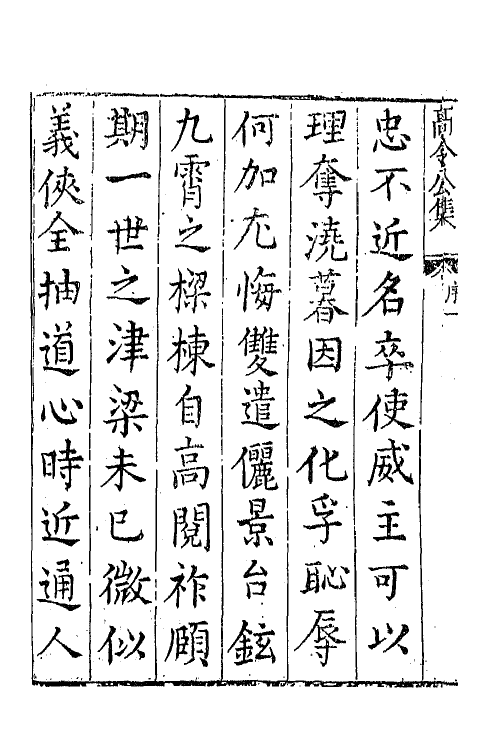 高令公集 序 一
忠不近名卒使威主可以
理奪澆暮因之化孚恥辱
何加尤悔雙遣儷景台鉉
九霄之樑棟自高閱祚頤
期一世之津梁未已微似
義俠全抽道心時近通人